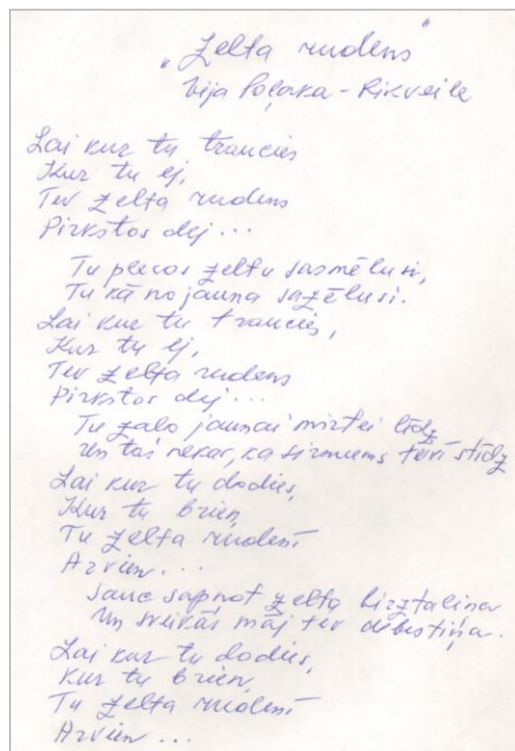 „Zelta rudens"
Vija Poļaka-Rikveile
Lai kur tu traucies
Kur tu ej,
Tev zelta rudens
Pirkstos dej...
Tu plecos zeltu sasmēlusi,
Tu kā no jauna sazēlusi.
Lai kur tu traucies,
Kur tu ej,
Tev zelta rudens
Pirkstos dej...
Tu zalo jaunai mirtei līdz
Un tas nekar, ka sirmums tevī stīdz
Lai kur tu dodies,
Kur tu brien,
Tu zelta rudenī
Arvien...
Sauc sapņot zelta birztaliņa
Un sveikās māj tev debestiņa.
Lai kur tu dodies,
Kur tu brien,
Tu zelta rudenī
Arvien...